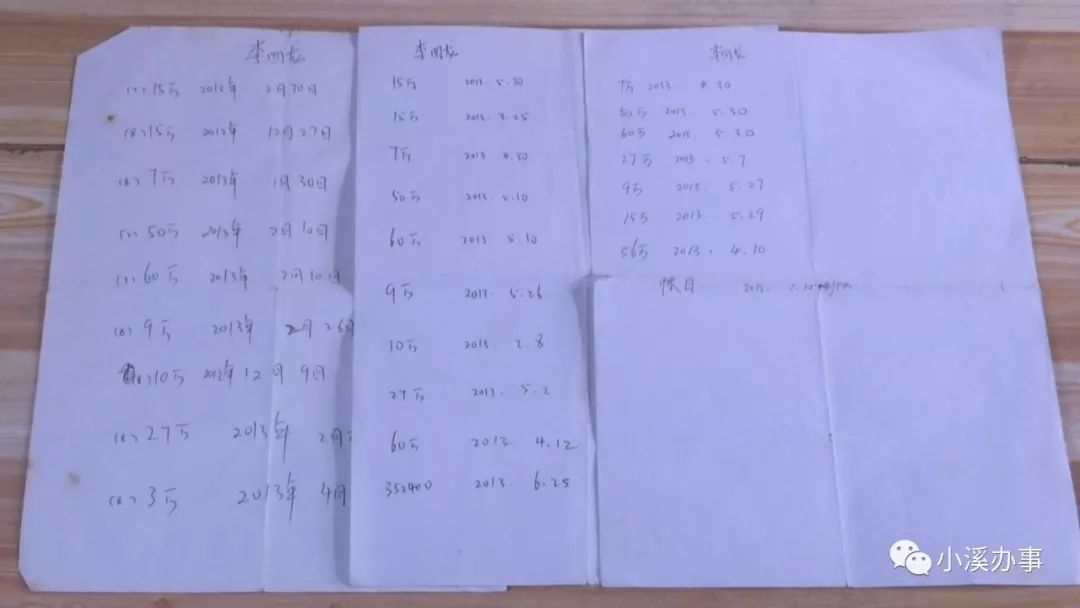 李四龙
(2)15万 2012年 2月30日
(8)15万 2012年 12月27日
(8)7万 2013年 1月30日
(2)50万 2013年 2月10日
(2)60万 2013年 2月10日
(8)9万 2013年 2月26日
10万 2012年12月9日
(8)27万 2013年 2月
(8)3万 2013年 4月
李四龙
15万 2013.5.30
15万 2013.3.25
7万 2013.4.30
50万 2013.5.10
60万 2013.5.10
9万 2013.5.26
10万 2013.3.8
27万 2013.5.2
60万 2013.4.12
352400 2013.6.25
李四龙
7万 2013.4.30
50万 2013.5.30
60万 2013.5.30
27万 2013.5.7
9万 2013.5.27
15万 2013.5.29
56万 2013.4.10
账目 2013.
小溪办事